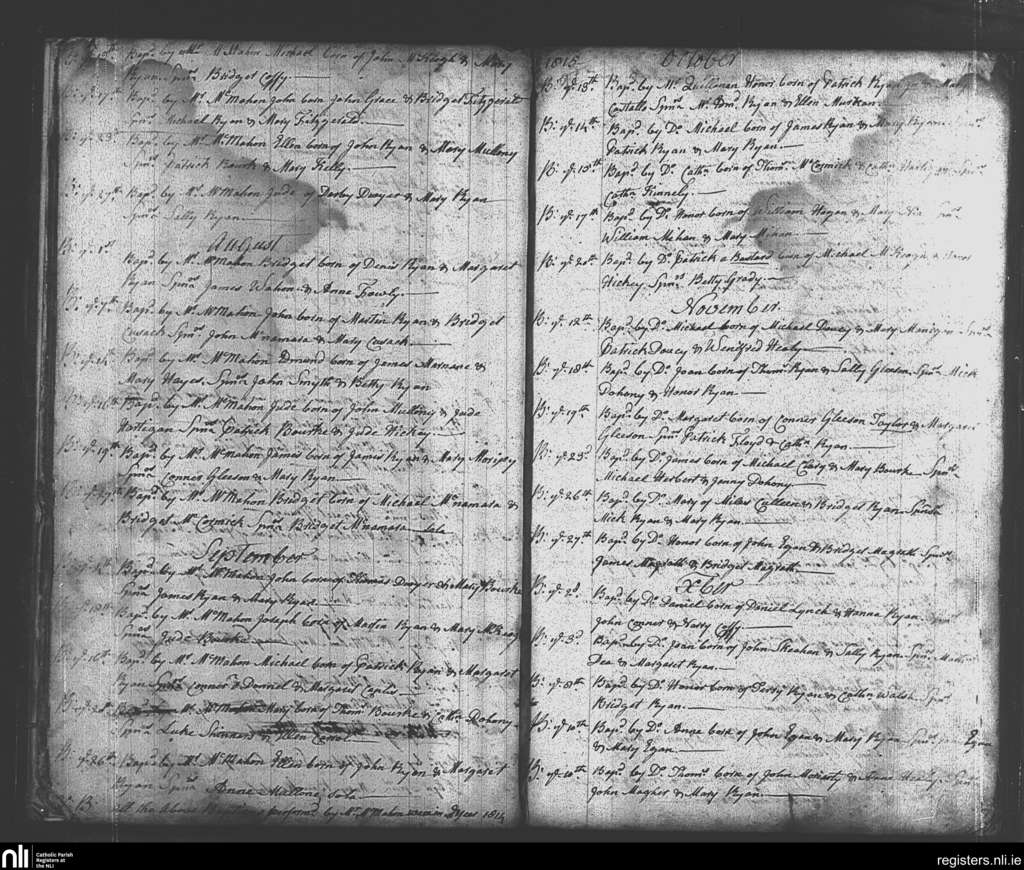 Bapd. by Mr. McMahon Michael born of John McKeogh & Mary
Ryan Spnrs. Bridget Coffy.
17th Bapd. by Mr. McMahon John born John Grace & Bridget Fitzgerald
Spnrs. Michael Ryan & Mary Fitzgerald.
23d Bapd. by Mr. McMahon Ellen born of John Ryan & Mary Mullony
Spnrs. Patrick Bourk & Mary Kelly.
27th Bapd. by Mr. McMahon Jude of Darby Dwyer & Mary Ryan
Spnr. Sally Ryan
August
B: ye. 1st Bapd. by Mr. McMahon Bridget born of Denis Ryan & Margaret
Ryan Spnrs. James & Anne
B: ye. 7th Bapd. by Mr. McMahon John born of Martin Ryan & Bridget
Cusack Spnrs. John McNamara & Mary Cusack
Bapd. by Mr. McMahon Edmond born of James Marnane &
Mary Hayes Spnrs. John Smyth & Betty Ryan
ye. 16th Bapd. by Mr. McMahon Jude born of John Mullony & Jude
Hartigan Spnrs. Patrick Bourke & Jude Hickey
B: ye. 19th Bapd. by Mr. McMahon James born of James Ryan & Mary
Spnrs. Connor Gleeson & Mary Ryan
B: ye. 27th Bapd. by Mr. McMahon Bridget born of Michael McNamara &
Bridget McCormick Spnr. Bridget McNamara sola
September
Bapd. by Mr. McMahon John born of Thomas Dwyer & Mary Bourke
Spnrs. James Ryan & Mary Ryan
Bapd. by Mr. McMahon Joseph born of Martin Ryan & Mary
Spnr. Jude Bourke
ye. 16th Bapd. by Mr. McMahon Michael born of Patrick Ryan & Margaret
Ryan Spnrs. Connor O Donnel & Margaret
Mr. McMahon Mary born of Thoms. Bourke & Cathn. Dohony
Spnrs. Luke Skinners & Ellen
B: ye. 26th Bapd. by Mr. McMahon Ellen born of John Ryan & Margaret
Ryan Spnr. Anne Mallone sola
B: all the above performd. by Mr. McMahon 1815
1815 October
B: ye. 13th Bapd. by Mr. Quillanan Honor born of Patrick Ryan
Costello Spnrs. Mr. Edm. Ryan & Ellen
B: ye. 14th Bapd. by Do. Michael born of James Ryan & Mary Ryan
Patrick Ryan & Mary Ryan
B: ye. 15th Bapd. by Do. Cathn. born of Thoms. McCormick & Cathn.
Cathn. Kinnely
B: ye. 17th Bapd. by Do. Honor born of William Hogan & Mary
William Mehan & Mary Mehan
B: ye. 20th Bapd. by Do. Patrick a Bastard born of Michael
Hickey Spnrs. Betty Grady
November
B: ye. 12th Bapd. by Do. Michael born of Michael Doucy & Mary
Patrick Doucy & Wenifred Healy
B: ye. 18th Bapd. by Do. Joan born of Thoms. Ryan & Sally Gleeson Spnrs. Mick
Dohony & Honor Ryan
B: ye. 19th Bapd. by Do. Margaret born of Connor Gleeson Taylor & Margaret
Gleeson Spnrs. Patrick Floyd & Cathn. Ryan
B: ye. 23d Bapd. by Do. James born of Michael Clary & Mary Bourke Spnrs.
Michael Herbert & Jenny Dohony
B: ye. 26th Bapd. by Do. Mary of Miles Culleen & Bridget Ryan Spnrs.
Mick Ryan & Mary Ryan
B: ye. 27th Bapd. by Do. Honor born of John Egan & Bridget Magrath Spnrs.
James Magrath & Bridget Magrath
Xber
B: ye. 2d. Bapd. by Do. Daniel born of Daniel Lynch & Hanna Ryan
John Connor & Coffy
B: ye. 3d Bapd. by Do. Joan born of John Skeahan & Sally Ryan Spnrs.
Dea & Margaret Ryan
B: ye. 8th Bapd. by Do. Honor born of Terry Ryan & Cathn. Walsh Spnr.
Bridget Ryan
B: ye. 10th Bapd. by Do. Anne born of John Egan & Mary Ryan Spnrs. Egan
& Mary Egan
B: ye. 10th Bapd. by Do. Thoms. born of John Moriarty & Anne Healy Spnrs.
John Magher & Mary Ryan
nli
Catholic Parish
Registers at
the NLI
registers.nli.ie